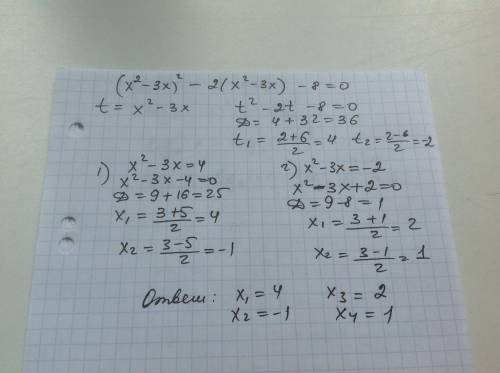 (x² - 3x)² - 2(x² - 3x) - 8 = 0
t = x² - 3x
t² - 2t - 8 = 0
D = 4 + 32 = 36
t₁ = (2+6)/2 = 4 t₂ = (2-6)/2 = -2
1) x² - 3x = 4
x² - 3x - 4 = 0
D = 9 + 16 = 25
x₁ = (3+5)/2 = 4
x₂ = (3-5)/2 = -1
2) x² - 3x = -2
x² - 3x + 2 = 0
D = 9 - 8 = 1
x₁ = (3+1)/2 = 2
x₂ = (3-1)/2 = 1
Ответ: x₁ = 4 x₃ = 2
x₂ = -1 x₄ = 1